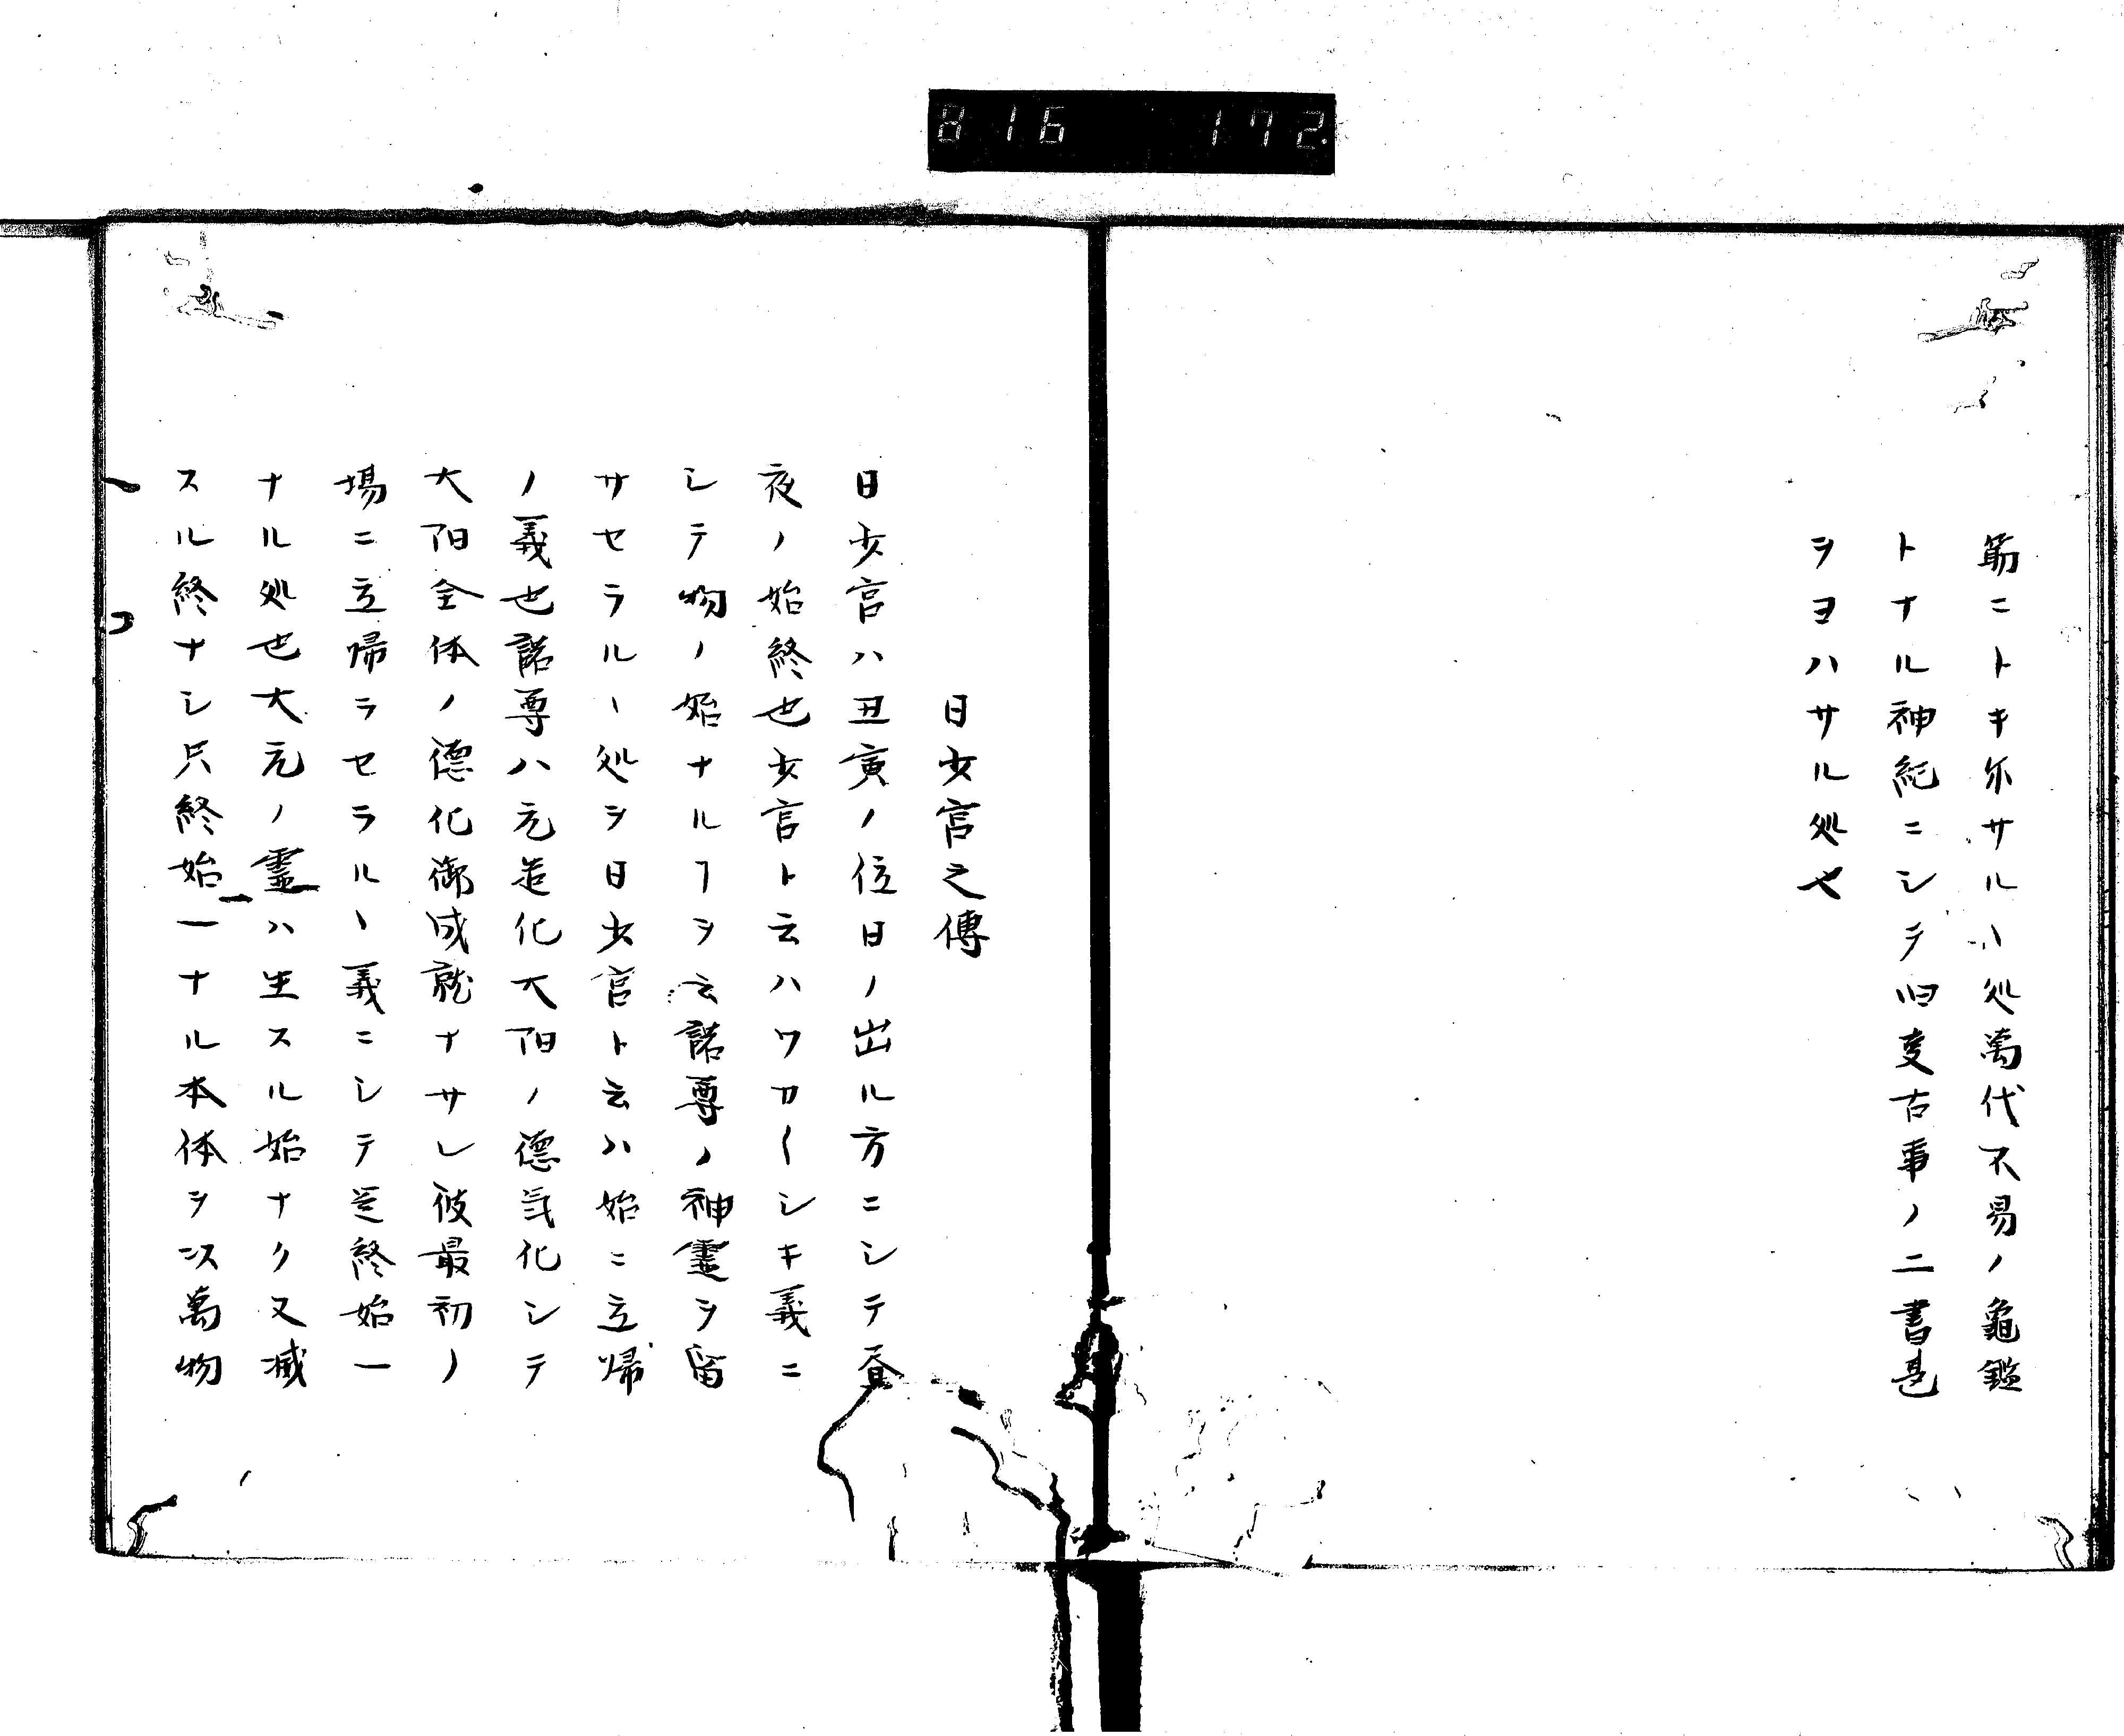 816 172
筋ニトキ尓サルハ処萬代不易ノ龜鑑
トナル神紀ニシテ旧叓古事ノ二書是
ヲヨハサル処也
日少宮之傳
日少宮ハ丑寅ノ位日ノ出ル方ニシテ昼
夜ノ始終也少宮ト云ハワカ〱シキ義ニ
シテ物ノ始ナルヿヲ云諾尊ノ神霊ヲ留
サセラルヽ処ヲ日少宮ト云ハ始ニ立帰
ノ義也諾尊ハ元造化大阳ノ德気化シテ
大阳全体ノ德化御成就ナサレ彼最初ノ
場ニ立帰ラセラルヽ義ニシテ是終始一
ナル処也大元ノ霊ハ生スル始ナク又滅
スル終ナシ只終始一ナル本体ヲ以萬物